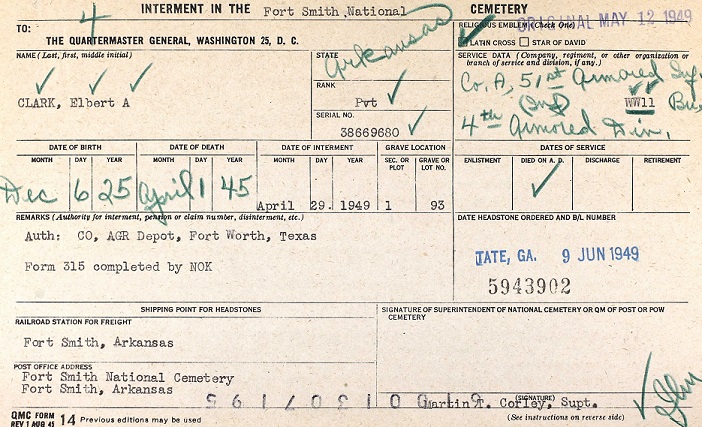 4
INTERMENT IN THE Fort Smith National CEMETERY
ORIGINAL MAY 12 1949
TO:
THE QUARTERMASTER GENERAL, WASHINGTON 25, D. C.
RELIGIOUS EMBLEM (Check One)
LATIN CROSS STAR OF DAVID
NAME (Last, first, middle initial)
CLARK, Elbert A
STATE
Arkansas
RANK
Pvt
SERIAL NO.
38669680
SERVICE DATA (Company, regiment, or other organization or
branch of service and division, if any.)
Co. A, 51st Armored Inf.
(Inf) WW11 Bn,
4th Armored Div.
DATE OF BIRTH
MONTH DAY YEAR
Dec 6 25
DATE OF DEATH
MONTH DAY YEAR
April 1 45
DATE OF INTERMENT
MONTH DAY YEAR
April 29. 1949
GRAVE LOCATION
SEC. OR PLOT GRAVE OR LOT NO.
1 93
DATES OF SERVICE
ENLISTMENT DIED ON A. D. DISCHARGE RETIREMENT
REMARKS (Authority for interment, pension or claim number, disinterment, etc.)
Auth: CO, AGR Depot, Fort Worth, Texas
Form 315 completed by NOK
DATE HEADSTONE ORDERED AND B/L NUMBER
TATE, GA. 9 JUN 1949
5943902
SHIPPING POINT FOR HEADSTONES
RAILROAD STATION FOR FREIGHT
Fort Smith, Arkansas
POST OFFICE ADDRESS
Fort Smith National Cemetery
Fort Smith, Arkansas
SIGNATURE OF SUPERINTENDENT OF NATIONAL CEMETERY OR QM OF POST OR POW
CEMETERY
Martin T. Corley, Supt.
(SIGNATURE)
(See instructions on reverse side)
QMC FORM
REV 1 AUG 45 14 Previous editions may be used